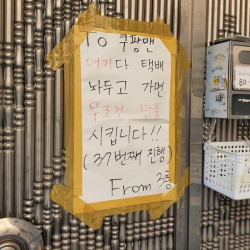 To 쿠팡맨
여기다 택배
놔두고 가면
무조건 반품
시킵니다!!
(37번째 진행)
From 2층